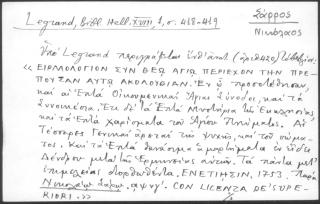 Legrand, Bibl. Hell. XVIII 1, σ. 418-419
Σάρρος
Νικόλαος
Ὑπὸ Legrand περιγράφεται ὑπ' ἀριθ. (ἀριθ 420)
« ΕΙΡΜΟΛΟΓΙΟΝ ΣΥΝ ΘΕῼ ΑΓΙῼ ΠΕΡΙΕΧΟΝ ΤΗΝ ΠΡΕ-
ΠΟΥΣΑΝ ΑΥΤῼ ΑΚΟΛΟΥΘΙΑΝ. Ἐν ᾧ προσετέθησαν,
καὶ αἱ Ἑπτὰ Οἰκουμενικαὶ Ἅγιαι Σύνοδοι, καὶ τὰ
Συνοικέσια. Ἔτι δὲ τὰ Ἑπτὰ Μυστήρια τῆς Ἐκκλησίας,
καὶ τὰ Ἑπτὰ χαρίσματα τοῦ Ἁγίου Πνεύματος. Αἱ
Τέσσαρες Γενικαὶ ἀρεταὶ τῆς ψυχῆς, καὶ τοῦ σώμα-
τος. Καὶ τὰ Ἑπτὰ θανάσιμα ἁμαρτήματα ἐν εἴδει
Δένδρου μετὰ τῆς Ἑρμηνείας αὐτῶν. Τὰ πάντα μετ'
ἐπιμελείας διορθωθέντα. ΕΝΕΤΙΗΣΙΝ, 1753. Παρὰ
Νικολάῳ Σάρῳ. αψνγ'. CON LICENZA DE' SUPE-
RIORI. »